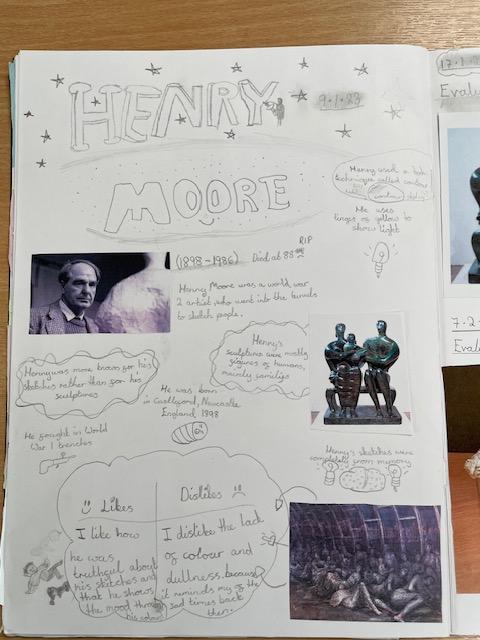 HENRY
9.1.23
MOORE
Henry used a both
technique called contour
contour
Me uses
tinges of yellow to
show light
RIP
(1898-1986) Died at 88
Henry Moore was a world war
2 artist, who went into the tunnels
to sketch people.
Henry's
sculptures were mostly
figures of humans,
mainly families
Henry was more known for his
sketches rather than for his
sculptures
He was born
in Castleford, Newcastle
England, 1898
He fought in World
War 1 trenches
Henry's sketches were
completely from memory
Likes
I like how
he was
truthful about
his sketches and
that he shows
the mood through
his colour
Dislikes
I dislike the lack
of colour and
dullness. because
it reminds my of the
sad times back
then.
17.1.2
Evalu
7.2.
Evalu